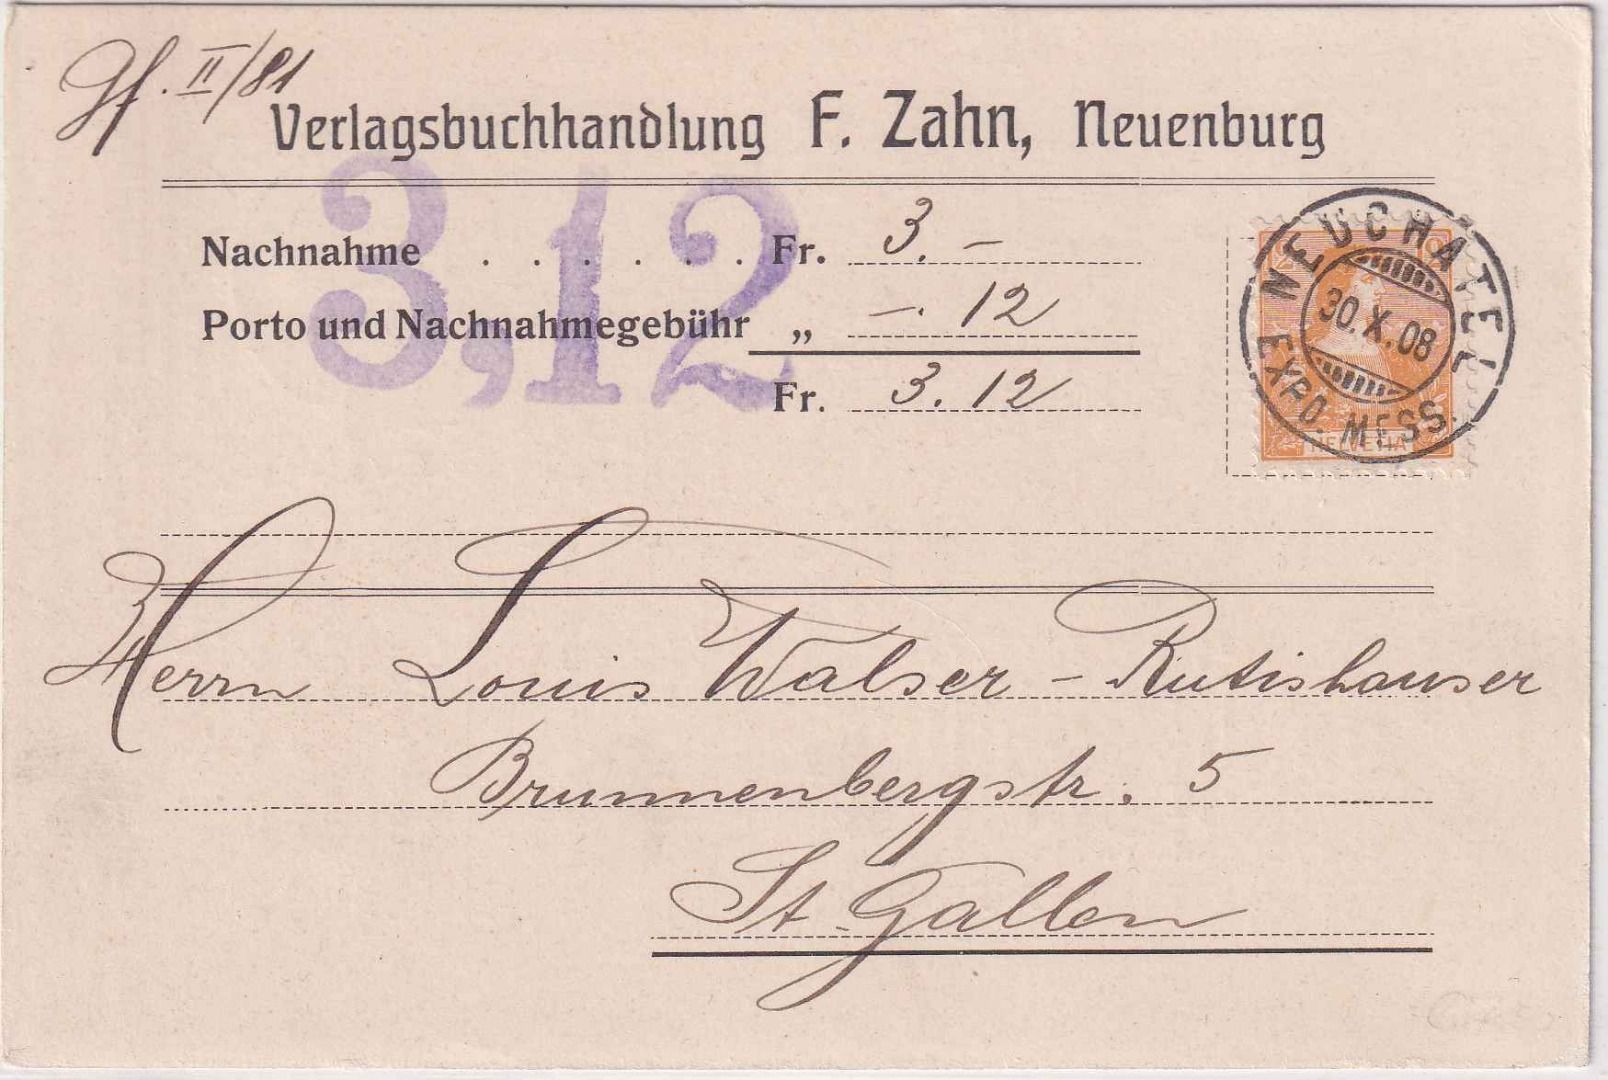 Gf. II/81
Verlagsbuchhandlung F. Zahn, Neuenburg
3,12
Nachnahme . . . . . . Fr. 3. –
Porto und Nachnahmegebühr „ –. 12
Fr. 3. 12
NEUCHATEL
30.X.08
EXPD. MESS.
HELVETIA
Herrn Louis Walser - Rutishauser
Brunnenbergstr. 5
St. Gallen